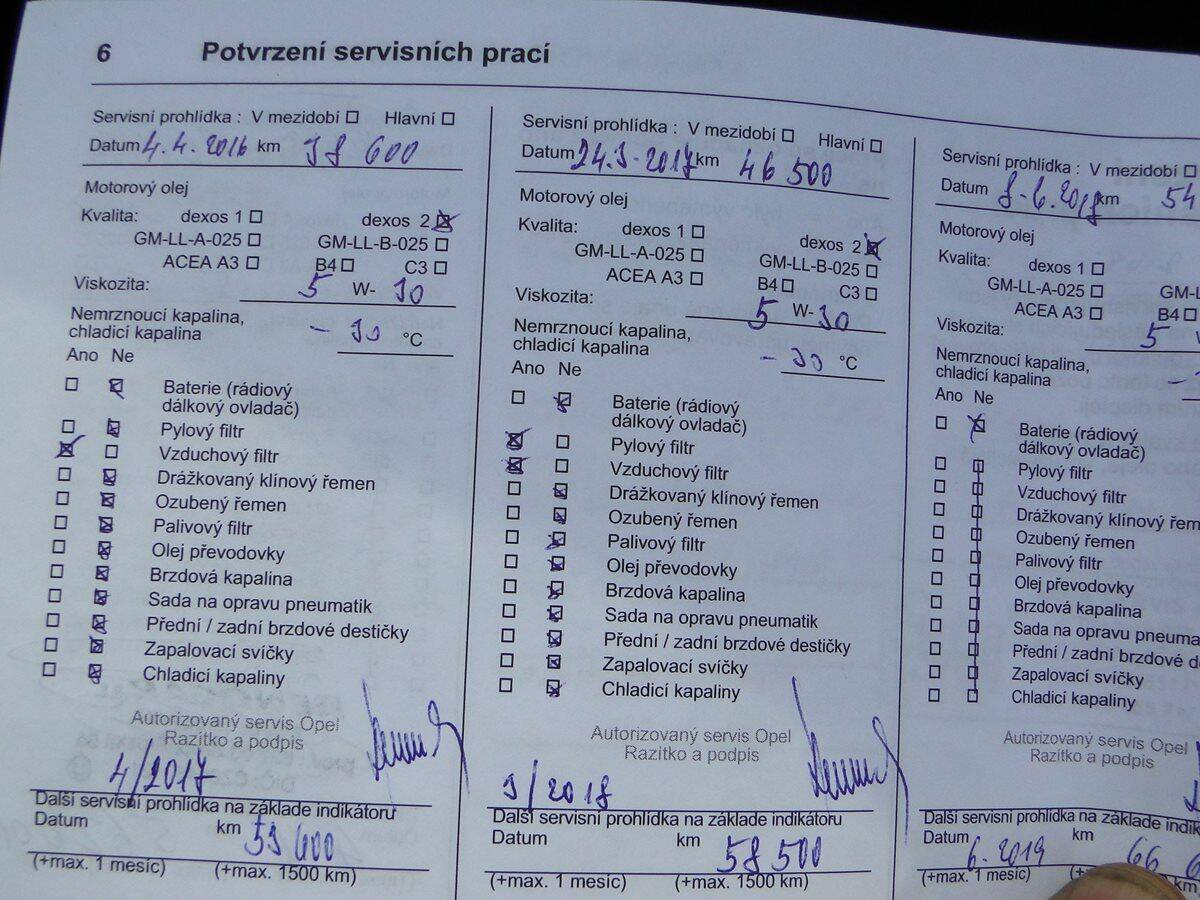 6 Potvrzení servisních prací
Servisní prohlídka : V mezidobí Hlavní
Datum 4.4.2016 km 38 600
Motorový olej
Kvalita: dexos 1 dexos 2
GM-LL-A-025 GM-LL-B-025
ACEA A3 B4 C3
Viskozita: 5 W- 30
Nemrznoucí kapalina,
chladicí kapalina - 30 °C
Ano Ne
Baterie (rádiový
dálkový ovladač)
Pylový filtr
Vzduchový filtr
Drážkovaný klínový řemen
Ozubený řemen
Palivový filtr
Olej převodovky
Brzdová kapalina
Sada na opravu pneumatik
Přední / zadní brzdové destičky
Zapalovací svíčky
Chladicí kapaliny
Autorizovaný servis Opel
Razítko a podpis
4/2017
Další servisní prohlídka na základe indikátoru
Datum km 53 600
(+max. 1 mesíc) (+max. 1500 km)
Servisní prohlídka : V mezidobí Hlavní
Datum 24.3.2017 km 46 500
Motorový olej
Kvalita: dexos 1 dexos 2
GM-LL-A-025 GM-LL-B-025
ACEA A3 B4 C3
Viskozita: 5 W- 30
Nemrznoucí kapalina,
chladicí kapalina - 30 °C
Ano Ne
Baterie (rádiový
dálkový ovladač)
Pylový filtr
Vzduchový filtr
Drážkovaný klínový řemen
Ozubený řemen
Palivový filtr
Olej převodovky
Brzdová kapalina
Sada na opravu pneumatik
Přední / zadní brzdové destičky
Zapalovací svíčky
Chladicí kapaliny
Autorizovaný servis Opel
Razítko a podpis
3/2018
Další servisní prohlídka na základe indikátoru
Datum km 58 500
(+max. 1 mesíc) (+max. 1500 km)
Servisní prohlídka : V mezidobí
Datum 8.6.2018 km 54
Motorový olej
Kvalita: dexos 1
GM-LL-A-025 GM-L
ACEA A3 B4
Viskozita: 5
Nemrznoucí kapalina,
chladicí kapalina -
Ano Ne
Baterie (rádiový
dálkový ovladač)
Pylový filtr
Vzduchový filtr
Drážkovaný klínový řem
Ozubený řemen
Palivový filtr
Olej převodovky
Brzdová kapalina
Sada na opravu pneuma
Přední / zadní brzdové d
Zapalovací svíčky
Chladicí kapaliny
Autorizovaný servis Opel
Razítko a podpis
Další servisní prohlídka na základe indikáto
Datum 6.2019 km 66
(+max. 1 mesíc) (+max.